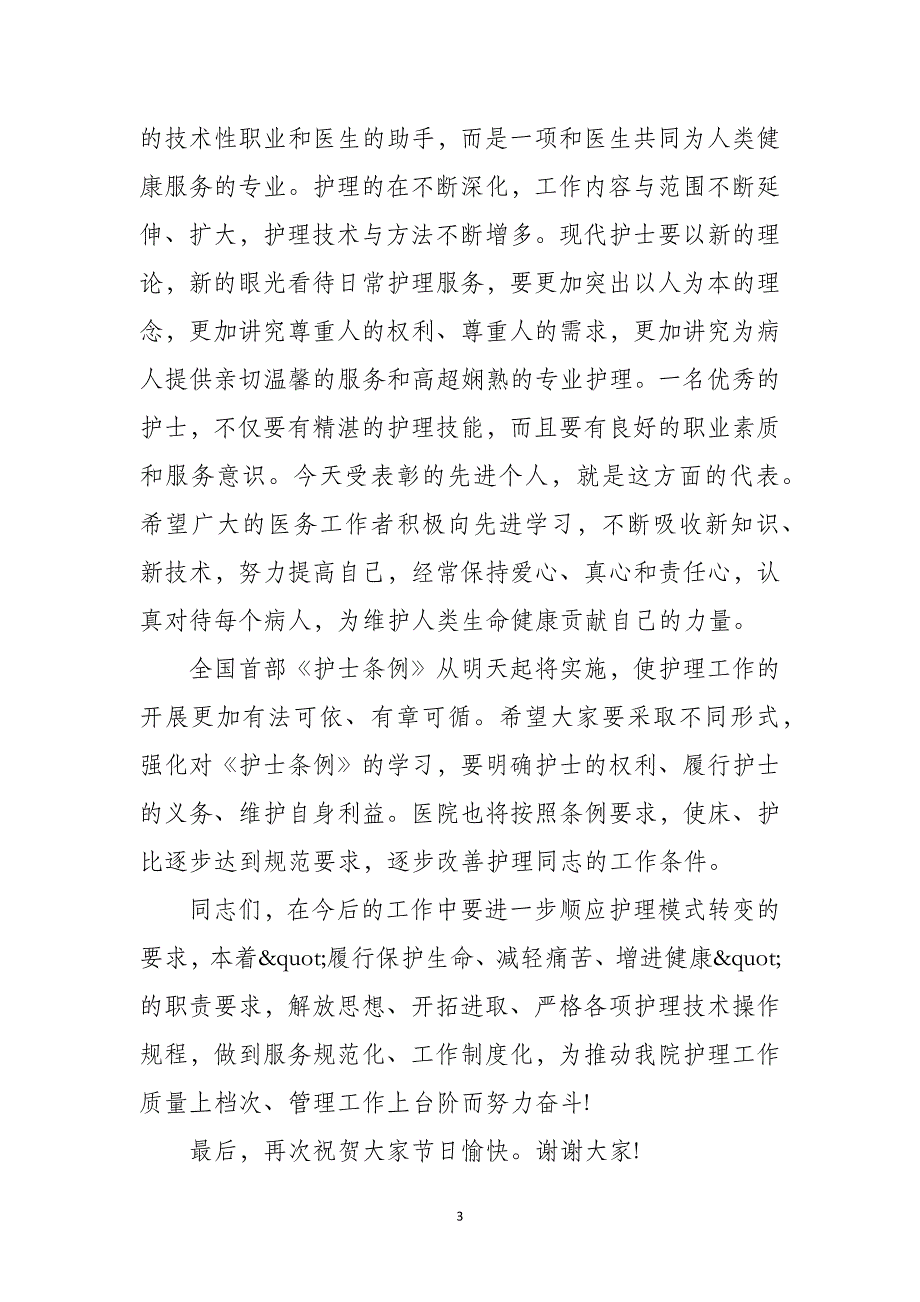 的技术性职业和医生的助手，而是一项和医生共同为人类健
康服务的专业。护理的在不断深化，工作内容与范围不断延
伸、扩大，护理技术与方法不断增多。现代护士要以新的理
论，新的眼光看待日常护理服务，要更加突出以人为本的理
念，更加讲究尊重人的权利、尊重人的需求，更加讲究为病
人提供亲切温馨的服务和高超娴熟的专业护理。一名优秀的
护士，不仅要有精湛的护理技能，而且要有良好的职业素质
和服务意识。今天受表彰的先进个人，就是这方面的代表。
希望广大的医务工作者积极向先进学习，不断吸收新知识、
新技术，努力提高自己，经常保持爱心、真心和责任心，认
真对待每个病人，为维护人类生命健康贡献自己的力量。
全国首部《护士条例》从明天起将实施，使护理工作的
开展更加有法可依、有章可循。希望大家要采取不同形式，
强化对《护士条例》的学习，要明确护士的权利、履行护士
的义务、维护自身利益。医院也将按照条例要求，使床、护
比逐步达到规范要求，逐步改善护理同志的工作条件。
同志们，在今后的工作中要进一步顺应护理模式转变的
要求，本着&quot;履行保护生命、减轻痛苦、增进健康&quot;
的职责要求，解放思想、开拓进取、严格各项护理技术操作
规程，做到服务规范化、工作制度化，为推动我院护理工作
质量上档次、管理工作上台阶而努力奋斗!
最后，再次祝贺大家节日愉快。谢谢大家!
3